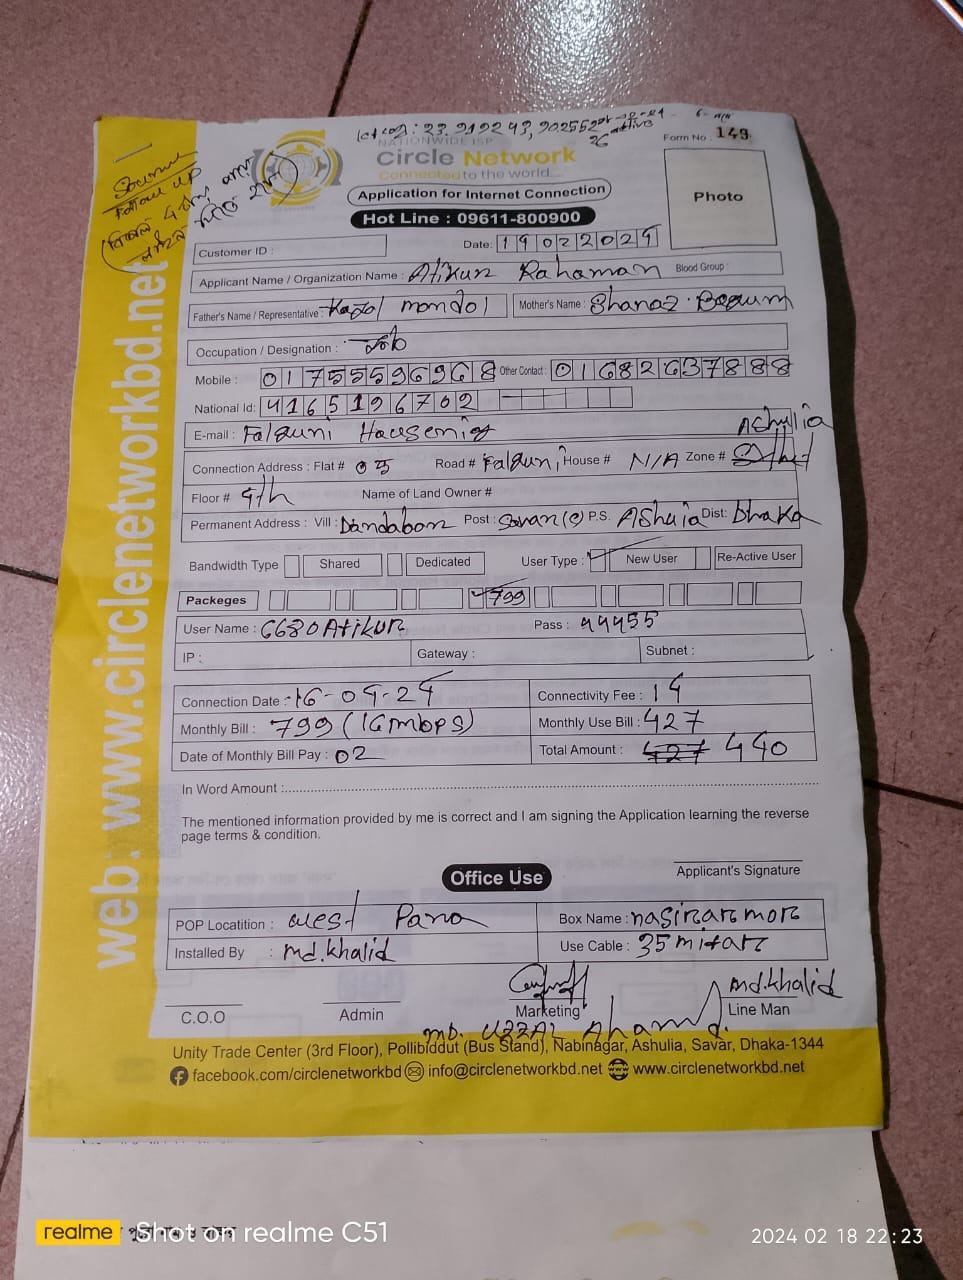 NATIONWIDE ISP
Circle Network
Connected to the world...
Form No : 149
Application for Internet Connection
Photo
Hot Line : 09611-800900
Customer ID :
Date: 19022024
Applicant Name / Organization Name : Atikur Rahaman Blood Group :
Father's Name / Representative : Kazol mondol Mother's Name : Shanaz Begum
Occupation / Designation : Job
Mobile : 01755596968 Other Contact : 01682637888
National Id: 4165196702
E-mail : Falguni Hausening
Ashulia
Connection Address : Flat # Road # Falguni, House # N/A Zone #
Floor # 4th Name of Land Owner #
Permanent Address : Vill : Dandabor Post : Savar (C) P.S. Ashuia Dist: Dhaka
Bandwidth Type Shared Dedicated User Type : New User Re-Active User
Packeges 799
User Name : 6680Atikur Pass : 44455
IP : Gateway : Subnet :
Connection Date :- 16-04-24 Connectivity Fee : 14
Monthly Bill : 799 (16mbps) Monthly Use Bill : 427
Date of Monthly Bill Pay : 02 Total Amount : 427 440
In Word Amount :
The mentioned information provided by me is correct and I am signing the Application learning the reverse
page terms & condition.
Applicant's Signature
Office Use
POP Locatition : West Para Box Name : nasirar mor
Installed By : md.khalid Use Cable : 35 mitar
md.khalid
C.O.O Admin Marketing Line Man
md. UZZAL Aham
Unity Trade Center (3rd Floor), Pollibiddut (Bus Stand), Nabinagar, Ashulia, Savar, Dhaka-1344
facebook.com/circlenetworkbd info@circlenetworkbd.net www.circlenetworkbd.net
web: www.circlenetworkbd.net
realme Shot on realme C51
2024 02 18 22:23